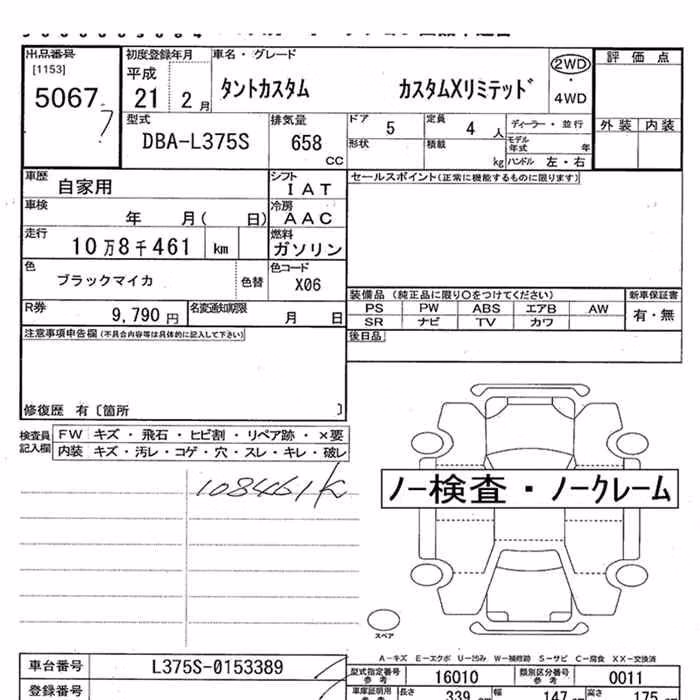 出品番号 初度登録年月 車名・グレード 評価点
[1153] 平成 2WD
5067 21 2月 タントカスタム カスタムXリミテッド ・
7 4WD
型式 排気量 ドア 5 定員 4人 ディーラー・並行 外装 内装
DBA-L375S 658 形状 積載 モデル年式 年
CC kg ハンドル 左・右
車歴 自家用 シフト IAT セールスポイント(正常に機能するものに限ります)
車検 年 月( 日) 冷房 AAC
走行 10万8千461 km 燃料 ガソリン
色 ブラックマイカ 色替 色コード X06
装備品 (純正品に限り○をつけてください) 新車保証書
R券 9,790円 名変通知期限 月 日 PS PW ABS エアB AW 有・無
SR ナビ TV カワ
注意事項申告欄(不具合内容等は具体的に記入して下さい) 後日品
修復歴 有〔箇所 〕
検査員記入欄 FW キズ・飛石・ヒビ割・リペア跡・×要
内装 キズ・汚レ・コゲ・穴・スレ・キレ・破レ
108461K
ノー検査・ノークレーム
スペア
A-キズ E-エクボ U-凹み W-補修跡 S-サビ C-腐食 XX-交換済
車台番号 L375S-0153389 型式指定番号 参考 16010 類別区分番号 参考 0011
登録番号 車庫証明用 参考 長さ 339 幅 147 高さ 175